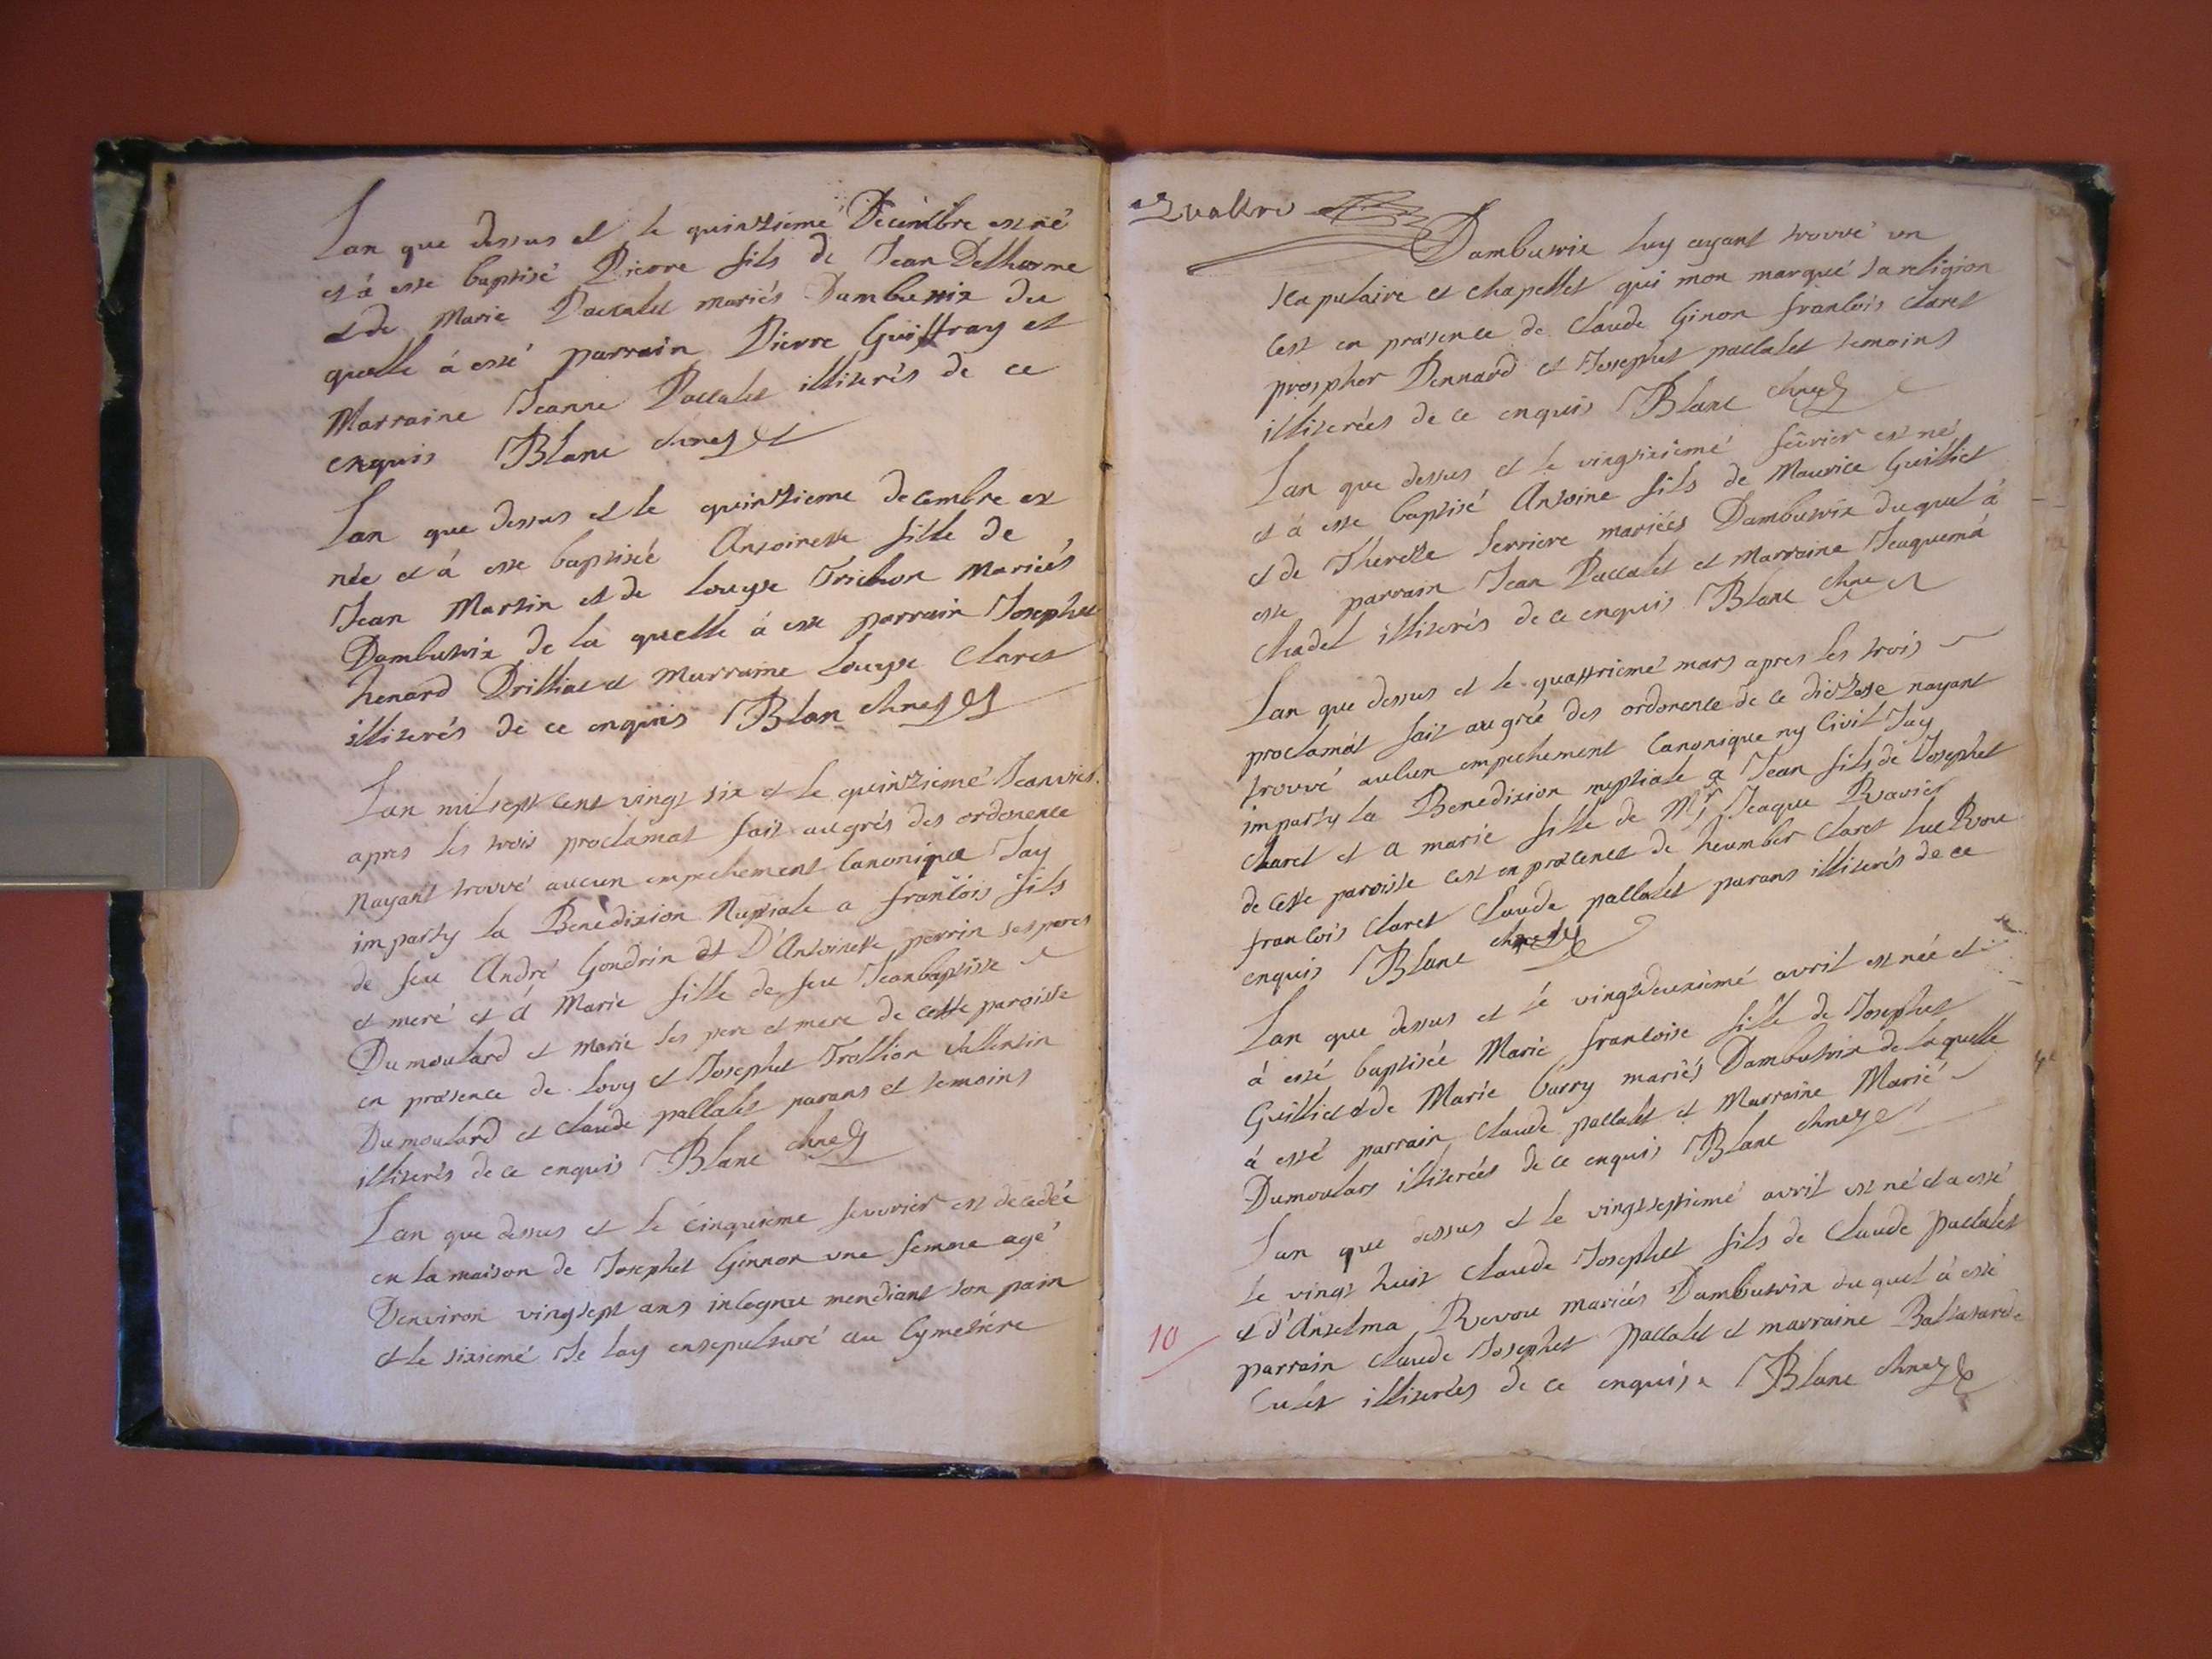 Lan que dessus et le quinzieme Decembre est né
et à esté baptisé Pierre fils de Jean Delhorme
et de Marie Paccalet mariés Dambutrix du
quelle à esté parrain Pierre Guiffray et
Marraine Jeanne Paccalet illiterés de ce
enquis Blanc chne
Lan que dessus et le quinzieme decembre est
née et à esté baptisée Antoinette fille de
Jean Martin et de Louyse Trichon Mariés
Dambutrix de la quelle à esté parrain Josephet
henard Drilliat et Marraine Louyse Claret
illiterés de ce enquis Blan chne
Lan mil sept cent vingt six et le quinzieme Jeanvier
apres les trois proclamat fait augrés des ordonence
Nayant trouvé aucun empechement Canonique Jay
imparty la Benedixion Nuptiale a francois fils
de feu André Gondrin et D'Antoinette perrin ses peres
et meré et à Marie fille de feu Jeanbaptiste
Dumoulard et Marie ses pere et mere de cette paroisse
en præsence de Louy et Josephet Trollion Vallentin
Dumoulard et Claude pallalet parans et temoins
illiterés de ce enquis Blanc chne
Lan que dessus et le Cinquieme fevvrier est decedée
en la maison de Josephet Ginnon une femme agé
Denviron vingtsept ans incognue mendiant son pain
et le sixiemé Je lay ensepulturé au Cymetiére
Quattre
Dambutrix luy ayant trouvé un
scapulaire et chapellet qui mon marqué sa religion
cest en præsence de Claude Ginon francois Claret
prospher Pennard et Josephet paccalet temoins
illiterées de ce enquis Blanc chne
Lan que dessus et le vingtsixiemé fevrier est né
et à esté baptisé Antoine fils de Maurice Guilliet
et de Therese Serriere mariées Dambutrix du quel à
esté parrain Jean Paccalet et Marraine Jeaquemà
Chadel illiterés de ce enquis Blanc chne
Lan que dessus et le quattriemé mars apres les trois
proclamat fait augré des ordonence de ce diozese nayant
trouvé aulcun empechement Canonique ny Civil Jay
imparty la Benedixion nuptiale a Jean fils de Josephet
Claret et a marie fille de Mr Jeaque Ravier
de cette paroisse cest en præcence de heumber Claret luc Rvou
francois Claret Claude pallalet parans illiterés de ce
enquis Blanc chne
Lan que dessus et le vingtdeuxiemé avril est née et
à esté baptisée Marie francoise fille de Josephet
Guilliet et de Marie Curry mariés Dambutrix de laquelle
à esté parrain Claude pallalet et Marraine Marié
Dumoulars illiterées de ce enquis Blanc chne
Lan que dessus et le vingtseptiemé avril est né et a esté
le vingt huit Claude Josephet fils de Claude paccalet
et d'Anselma Revou mariées Dambutrix du quel à esté
parrain Claude Josephet paccalet et marraine Baltasarde
Culet illiterées de ce enquis Blanc chne
10